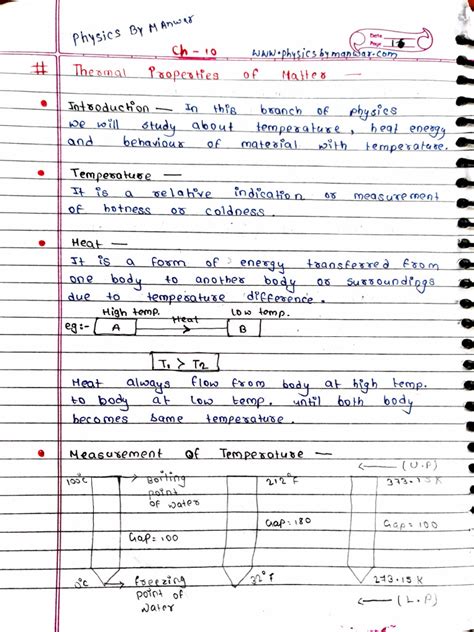 Physics By Manwar
Date
Page 16
Ch - 10
www.physicsbymanwar.com
# Thermal Properties of Matter —
• Introduction — In this branch of physics
we will study about temperature, heat energy
and behaviour of material with temperature.
• Temperature —
It is a relative indication or measurement
of hotness or coldness.
• Heat —
It is a form of energy transferred from
one body to another body or surroundings
due to temperature difference.
High temp. Low temp.
eg:- A Heat B
T₁ > T₂
Heat always flow from body at high temp.
to body at low temp. until both body
becomes same temperature.
• Measurement of Temperature —
(U.P)
100°C Boiling 212°F 373.15K
point
of water
Gap = 180 Gap = 100
Gap = 100
0°C Freezing 32°F 273.15K
point of
water (L.P)